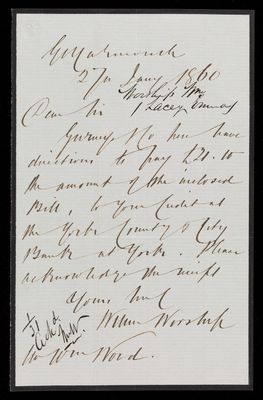 Gt Yarmouth
27 Jany 1860
Worship Wm
1 Lacey
Dear Sir
Gurneys & Co here have
directions to pay £21.10
the amount of the inclosed
Bill, to Your Credit at
the York County & City
Bank at York. Please
acknowledge the receipt
Yours truly
William Worship
Mr Wm Wood.